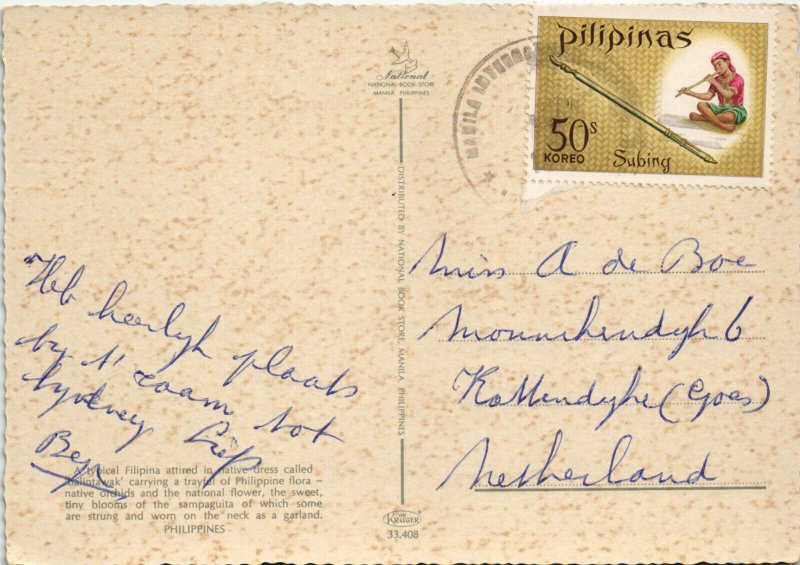 National
NATIONAL BOOK STORE
MANILA, PHILIPPINES
MANILA
pilipinas
50s
KOREO
Subing
DISTRIBUTED BY NATIONAL BOOK STORE, MANILA, PHILIPPINES
Heb heerlijk plaats
by 't raam tot
Sydney
Miss A de Boe
6
(Goes)
Netherland
A typical Filipina attired in native dress called
'balintawak' carrying a trayful of Philippine flora –
native orchids and the national flower, the sweet,
tiny blooms of the sampaguita of which some
are strung and worn on the neck as a garland.
PHILIPPINES
KRUGER
33.408